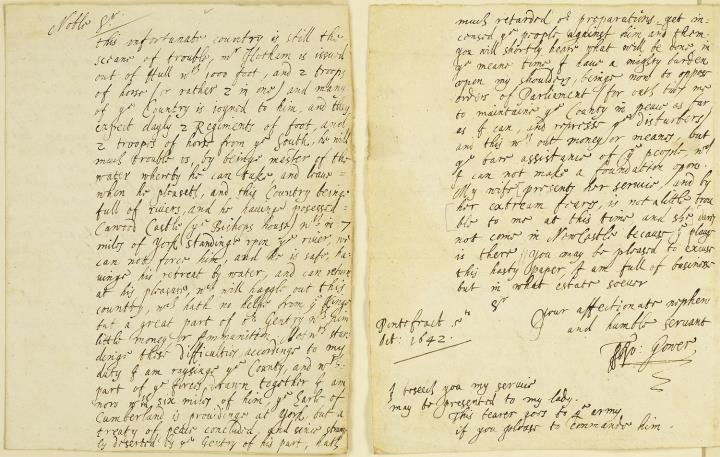 Noble Sr
this unfortunate country is still the
sceane of trouble, mr Hotham is issued
out of Hull wth 1000 foot, and 2 troops
of horse (or rather 2 in one) and many
of ye Country is joyned to him, and they
expect dayly 2 Regiments of foot, and
2 troops of horse from ye South, he will
much trouble us, by beinge master of the
water whereby he can take, and leave
when he pleaseth, and this Country beinge
full of rivers, and he havinge possessed
Cawood Castle (ye Bishops house) wch in 7
miles of York standinge upon ye river, we
can not force him, and he is safe, ha-
vinge his retreat by water, and can return
at his pleasure, wch will haggle out this
country, wch hath no helpe from ye Kinge
but a great part of or Gentry wth him
little money or Ammunition. Notwthstan
dinge these difficulties, accordinge to my
duty I am raysinge ye County, and wth
part of ye forces drawn together I am
now wthin six miles of him ye Earle of
Cumberland is providinge at York, but a
treaty of peace concluded, and since
deserted by ye Gentry of his part, hath
much retarded or preparations, yet in-
censed ye people against him and them
you will shortly heare what will be done, in
ye meane time I have a mighty burden
upon my shoulders, beinge now to oppose
orders of Parliament (for oath ties me
to maintaine ye County in peace as far
as I can, and represse ye disturbers)
and this wth out money or means, but
ye bare assistance of ye people, wch
I can not make a foundation upon.
My wife presents her service, and by
her extream fears, is not a little trou
ble to me at this time and she
not come in NewCastle because ye plage
is there // you may be pleased to excuse
this hasty paper, I am full of business
but in what estate soever
Sr
Your affectionate nephew
and humble servant
Tho: Gower
Pontefract 5th
Oct: 1642.
I beseech you my service
may be presented to my lady.
This bearer goes to ye army
if you please to commande him.